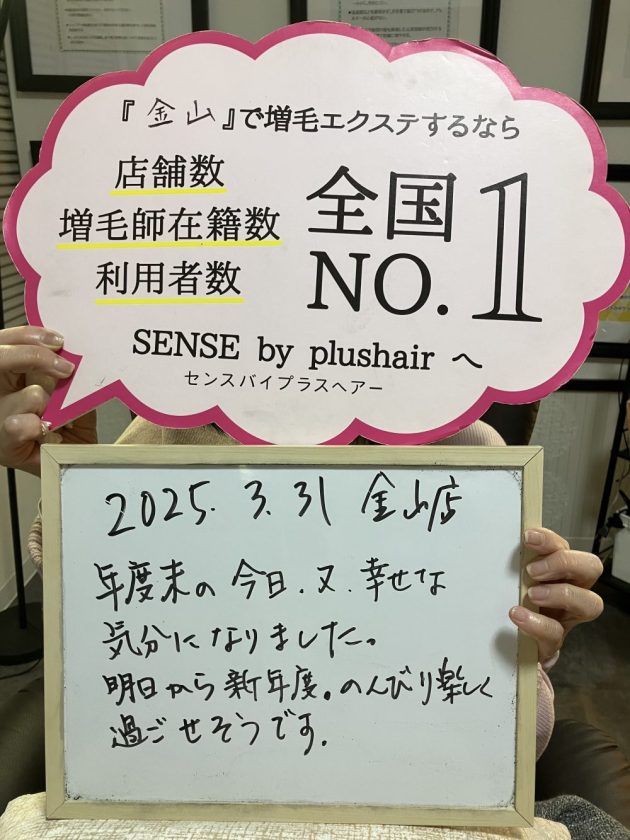 『金山』で増毛エクステするなら
店舗数
増毛師在籍数
利用者数
全国
NO.1
SENSE by plushair へ
センスバイプラスヘアー
2025. 3. 31 金山店
年度末の今日.又.幸せな
気分になりました。
明日から新年度。のんびり楽しく
過ごせそうです.